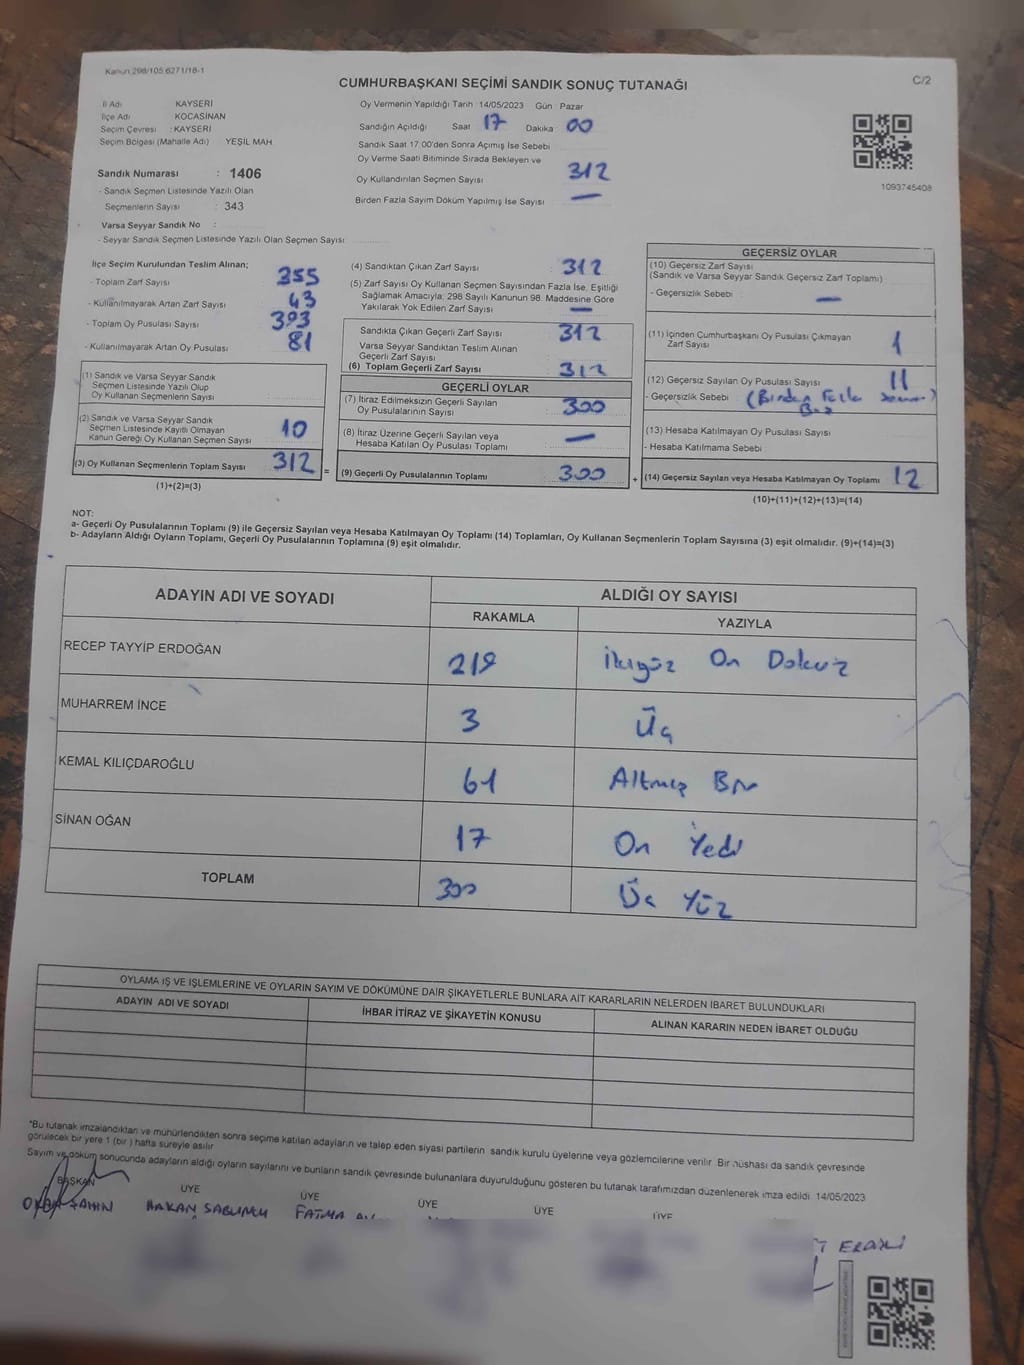 Kanun 298/105 6271/18-1
C/2
CUMHURBAŞKANI SEÇİMİ SANDIK SONUÇ TUTANAĞI
İl Adı KAYSERİ
İlçe Adı KOCASİNAN
Seçim Çevresi : KAYSERİ
Seçim Bölgesi (Mahalle Adı) YEŞİL MAH
Sandık Numarası : 1406
- Sandık Seçmen Listesinde Yazılı Olan
Seçmenlerin Sayısı : 343
Varsa Seyyar Sandık No :
- Seyyar Sandık Seçmen Listesinde Yazılı Olan Seçmen Sayısı
Oy Vermenin Yapıldığı Tarih : 14/05/2023 Gün : Pazar
Sandığın Açıldığı Saat 17 Dakika 00
Sandık Saat 17 00'den Sonra Açımış İse Sebebi
Oy Verme Saati Bitiminde Sırada Bekleyen ve
Oy Kullandırılan Seçmen Sayısı 312
Birden Fazla Sayım Döküm Yapılmış İse Sayısı —
1093745408
İlçe Seçim Kurulundan Teslim Alınan;
- Toplam Zarf Sayısı 355
- Kullanılmayarak Artan Zarf Sayısı 43
- Toplam Oy Pusulası Sayısı 393
- Kullanılmayarak Artan Oy Pusulası 81
(1) Sandık ve Varsa Seyyar Sandık
Seçmen Listesinde Yazılı Olup
Oy Kullanan Seçmenlerin Sayısı
(2) Sandık ve Varsa Seyyar Sandık
Seçmen Listesinde Kayıtlı Olmayan
Kanun Gereği Oy Kullanan Seçmen Sayısı 10
(3) Oy Kullanan Seçmenlerin Toplam Sayısı 312 =
(1)+(2)=(3)
(4) Sandıktan Çıkan Zarf Sayısı : 312
(5) Zarf Sayısı Oy Kullanan Seçmen Sayısından Fazla İse, Eşitliği
Sağlamak Amacıyla; 298 Sayılı Kanunun 98. Maddesine Göre
Yakılarak Yok Edilen Zarf Sayısı —
Sandıkta Çıkan Geçerli Zarf Sayısı 312
Varsa Seyyar Sandıktan Teslim Alınan
Geçerli Zarf Sayısı
(6) Toplam Geçerli Zarf Sayısı 312
GEÇERLİ OYLAR
(7) İtiraz Edilmeksizin Geçerli Sayılan
Oy Pusulalarının Sayısı 300
(8) İtiraz Üzerine Geçerli Sayılan veya
Hesaba Katılan Oy Pusulası Toplamı —
(9) Geçerli Oy Pusulalarının Toplamı 300 +
GEÇERSİZ OYLAR
(10) Geçersiz Zarf Sayısı
(Sandık ve Varsa Seyyar Sandık Geçersiz Zarf Toplamı)
- Geçersizlik Sebebi : —
(11) İçinden Cumhurbaşkanı Oy Pusulası Çıkmayan
Zarf Sayısı 1
(12) Geçersiz Sayılan Oy Pusulası Sayısı 11
- Geçersizlik Sebebi (Birden Fazla
(13) Hesaba Katılmayan Oy Pusulası Sayısı
- Hesaba Katılmama Sebebi
(14) Geçersiz Sayılan veya Hesaba Katılmayan Oy Toplamı 12
(10)+(11)+(12)+(13)=(14)
NOT:
a- Geçerli Oy Pusulalarının Toplamı (9) ile Geçersiz Sayılan veya Hesaba Katılmayan Oy Toplamı (14) Toplamları, Oy Kullanan Seçmenlerin Toplam Sayısına (3) eşit olmalıdır. (9)+(14)=(3)
b- Adayların Aldığı Oyların Toplamı, Geçerli Oy Pusulalarının Toplamına (9) eşit olmalıdır.
ADAYIN ADI VE SOYADI
ALDIĞI OY SAYISI
RAKAMLA YAZIYLA
RECEP TAYYİP ERDOĞAN 219 İkiyüz On Dokuz
MUHARREM İNCE 3 Üç
KEMAL KILIÇDAROĞLU 61 Altmış Bir
SİNAN OĞAN 17 On Yedi
TOPLAM 300 Üç Yüz
OYLAMA İŞ VE İŞLEMLERİNE VE OYLARIN SAYIM VE DÖKÜMÜNE DAİR ŞİKAYETLERLE BUNLARA AİT KARARLARIN NELERDEN İBARET BULUNDUKLARI
ADAYIN ADI VE SOYADI İHBAR İTİRAZ VE ŞİKAYETİN KONUSU ALINAN KARARIN NEDEN İBARET OLDUĞU
*Bu tutanak imzalandıktan ve mühürlendikten sonra seçime katılan adayların ve talep eden siyasi partilerin sandık kurulu üyelerine veya gözlemcilerine verilir Bir nüshası da sandık çevresinde
görülecek bir yere 1 (bir ) hafta süreyle asılır
Sayım ve döküm sonucunda adayların aldığı oyların sayılarını ve bunların sandık çevresinde bulunanlara duyurulduğunu gösteren bu tutanak tarafımızdan düzenlenerek imza edildi 14/05/2023
BAŞKAN ÜYE ÜYE ÜYE ÜYE ÜYE
ŞAHİN HAKAN SABUNCU FATMA